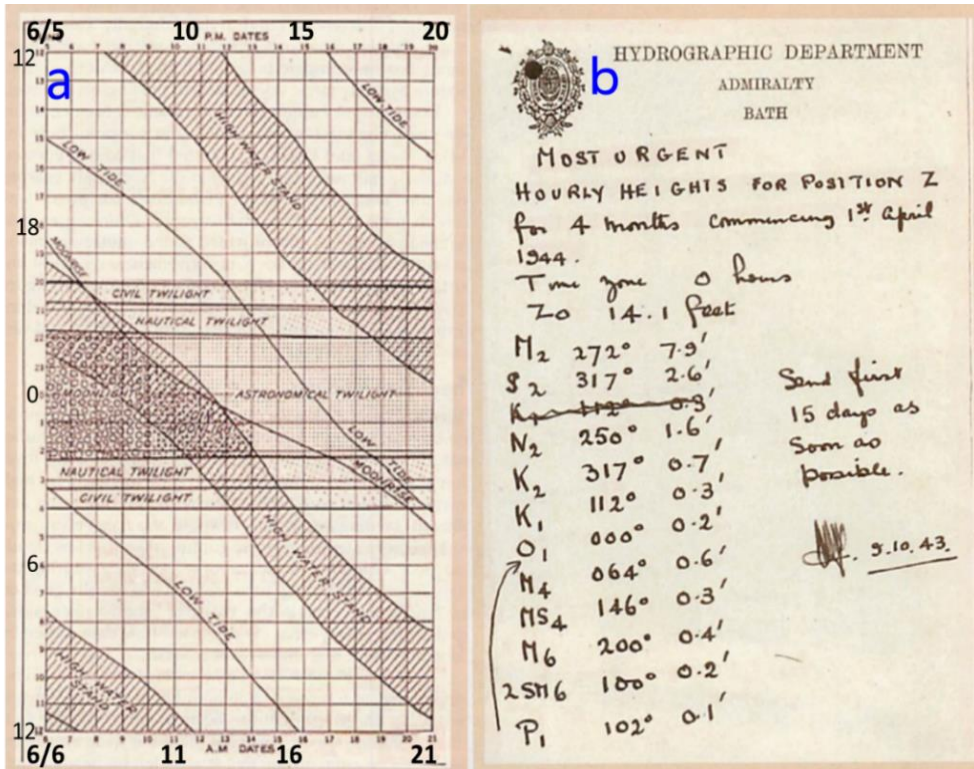 6/5 10 P.M. DATES 15 20
12
a
LOW TIDE
HIGH WATER STAND
LOW TIDE
18
MOONRISE
CIVIL TWILIGHT
NAUTICAL TWILIGHT
0
MOONLIGHT
ASTRONOMICAL TWILIGHT
LOW TIDE
MOONRISE
NAUTICAL TWILIGHT
CIVIL TWILIGHT
HIGH WATER STAND
6
LOW TIDE
HIGH WATER STAND
12
6 7 8 9 10 11 12 13 14 15 16 17 18 19 20 21
A.M DATES
6/6 11 16 21
b
HYDROGRAPHIC DEPARTMENT
ADMIRALTY
BATH
MOST URGENT
HOURLY HEIGHTS FOR POSITION Z
for 4 months commencing 1st April
1944.
Time zone 0 hours
Z0 14.1 feet
M2 272° 7.9'
S2 317° 2.6'
K1 112° 0.3'
N2 250° 1.6'
K2 317° 0.7'
K1 112° 0.3'
O1 000° 0.2'
M4 064° 0.6'
MS4 146° 0.3'
M6 200° 0.4'
2SM6 100° 0.2'
P1 102° 0.1'
Send first
15 days as
soon as
possible.
9.10.43.